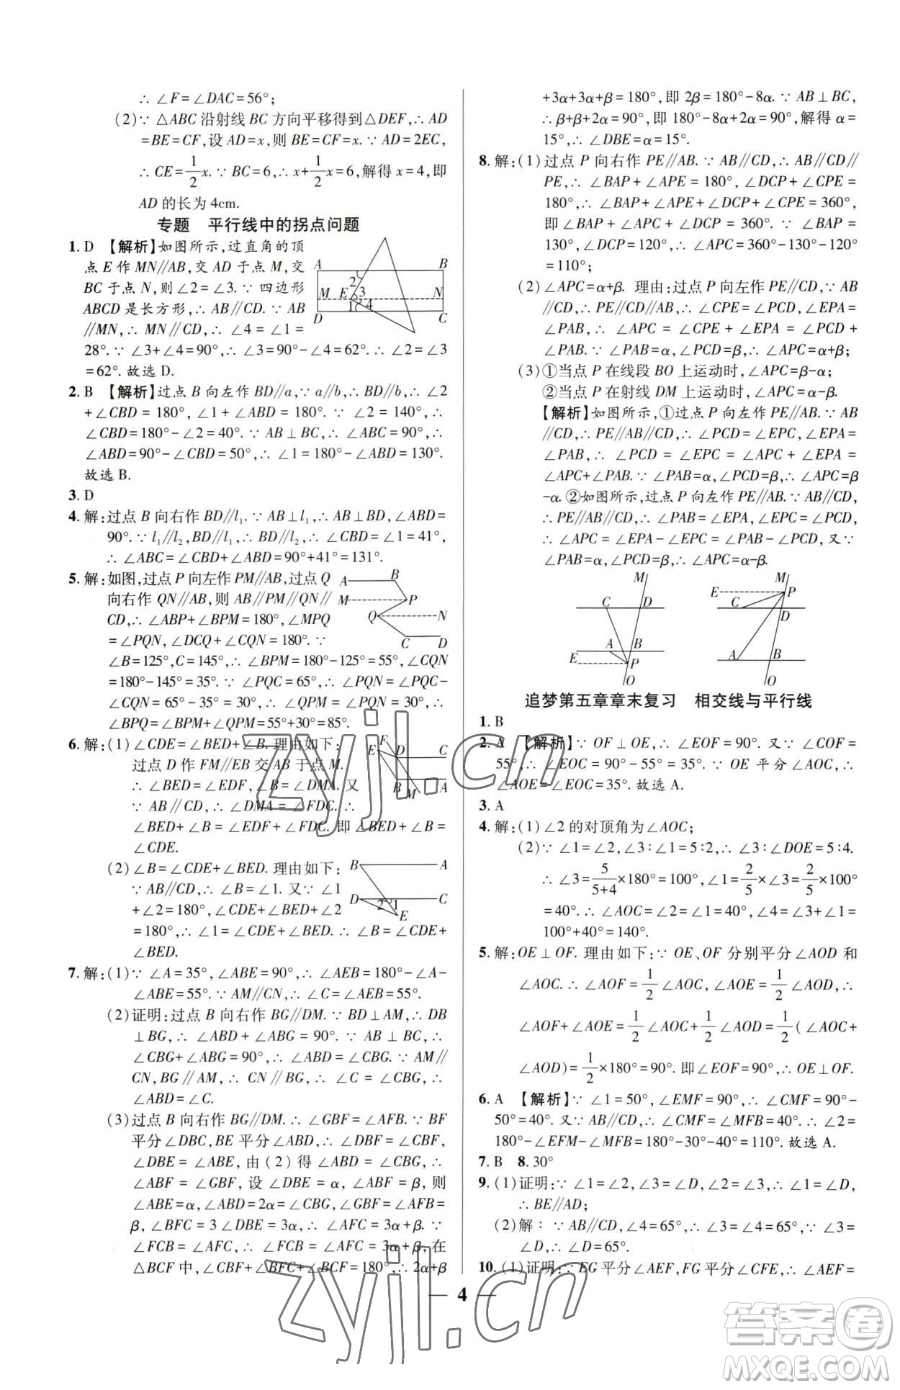 ∴ ∠F=∠DAC=56°;
(2)∵ △ABC 沿射线 BC 方向平移得到△DEF,∴ AD
=BE=CF,设 AD=x,则 BE=CF=x.∵ AD=2EC,
∴ CE=1/2x.∵ BC=6,∴ x+1/2x=6,解得 x=4,即
AD 的长为 4cm.
专题 平行线中的拐点问题
1. D 【解析】如图所示,过直角的顶
点 E 作 MN//AB,交 AD 于点 M,交
BC 于点 N,则∠2=∠3.∵ 四边形
ABCD 是长方形,∴ AB//CD.∵ AB
//MN,∴ MN//CD,∴ ∠4=∠1=
28°.∵ ∠3+∠4=90°,∴ ∠3=90°-∠4=62°.∴ ∠2=∠3
=62°.故选 D.
A
B
M
E
N
D
C
2
3
1
4
2. B 【解析】过点 B 向左作 BD//a.∵ a//b,∴ BD//b,∴ ∠2
+∠CBD=180°,∠1+∠ABD=180°.∵ ∠2=140°,∴
∠CBD=180°-∠2=40°.∵ AB⊥BC,∴ ∠ABC=90°.∴
∠ABD=90°-∠CBD=50°,∴ ∠1=180°-∠ABD=130°.
故选 B.
3. D
4. 解:过点 B 向右作 BD//l₁.∵ AB⊥l₁,∴ AB⊥BD,∠ABD=
90°.∵ l₁//l₂,BD//l₁,∴ BD//l₂,∴ ∠CBD=∠1=41°,
∴ ∠ABC=∠CBD+∠ABD=90°+41°=131°.
5. 解:如图,过点 P 向左作 PM//AB,过点 Q
向右作 QN//AB,则 PM//QN//AB//
CD,∴ ∠ABP+∠BPM=180°,∠MPQ
=∠PQN,∠DCQ+∠CQN=180°.∵
∠B=125°,∠C=115°,∴ ∠BPM=180°-125°=55°,∠CQN
=180°-115°=65°,∴ ∠PQC=∠PQN
-∠CQN=65°-35°=30°,∴ ∠QPM=∠PQN=30°,∴
∠BPQ=∠BPM+∠QPM=55°+30°=85°.
A
B
M
P
Q
N
C
D
6. 解:(1)∠CDE=∠BED+∠B.理由如下:
过点 D 作 FM//EB 交 AB 于点 M.∴
∠BED=∠EDF,∠B=∠DMA.又
∵ AB//CD,∴ ∠DMA=∠FDC.∴
∠BED+∠B=∠EDF+∠FDC.即∠BED+∠B=
∠CDE.
(2)∠B=∠CDE+∠BED.理由如下:∵
AB//CD,∴ ∠B=∠1.又∵ ∠1
+∠2=180°,∠CDE+∠BED+∠2
=180°,∴ ∠1=∠CDE+∠BED.∴ ∠B=∠CDE+
∠BED.
B
A
D
C
2
1
E
7. 解:(1)∵ ∠A=35°,∠ABE=90°,∴ ∠AEB=180°-∠A-
∠ABE=55°.∵ AM//CN,∴ ∠C=∠AEB=55°.
(2)证明:过点 B 向右作 BG//DM.∵ BD⊥AM,∴ DB⊥
BG,∴ ∠ABD+∠ABG=90°.∵ AB⊥BC,∴
∠CBG+∠ABG=90°,∴ ∠ABD=∠CBG.∵ AM//
CN,BG//AM,∴ CN//BG,∴ ∠C=∠CBG,∴
∠ABD=∠C.
(3)过点 B 向右作 BG//DM.∴ ∠GBF=∠AFB.∵ BF
平分∠DBC,BE 平分∠ABD,∴ ∠DBF=∠CBF,
∠DBE=∠ABE,由(2)得∠ABD=∠CBG,∴
∠ABF=∠GBF,设∠DBE=α,∠ABF=β,则
∠ABE=α,∠ABD=2α=∠CBG,∠GBF=∠AFB=
β,∠BFC=3∠DBE=3α,∴ ∠AFC=3α+β,∵
∠AFC+∠C=180°,∴ ∠C=∠AFC=3α+β,在
△BCF 中,∠CBF+∠BFC+∠BCF=180°,∴ 2α+β
+3α+3α+β=180°,即 2β=180°-8α.∵ AB⊥BC,
∴ β+β+2α=90°,即 180°-8α+2α=90°,解得 α=
15°,∴ ∠DBE=α=15°.
8. 解:(1)过点 P 向右作 PE//AB.∵ AB//CD,∴ PE//AB//
CD,∴ ∠BAP+∠APE=180°,∠DCP+∠CPE=
180°,∴ ∠BAP+∠APE+∠DCP+∠CPE=360°,
即∠BAP+∠APC+∠DCP=360°.∵ ∠BAP=
130°,∠DCP=120°,∴ ∠APC=360°-130°-120°
=110°;
(2)∠APC=α+β.理由:过点 P 向左作 PE//CD,∵ AB
//CD,∴ PE//AB//CD,∴ ∠CPE=∠PCD,∠EPA
=∠PAB,∴ ∠APC=∠CPE+∠EPA=∠PCD+
∠PAB.∵ ∠PAB=α,∠PCD=β,∴ ∠APC=α+β;
(3)①当点 P 在线段 BO 上运动时,∠APC=β-α;
②当点 P 在射线 DM 上运动时,∠APC=α-β.
【解析】如图所示,①过点 P 向左作 PE//CD.∵ AB
//CD,∴ PE//AB//CD,∴ ∠CPE=∠PCD,∠EPA
=∠PAB.∵ ∠CPE=∠APC+∠EPA,∴ ∠PCD=
∠APC+∠PAB.∵ ∠PAB=α,∠PCD=β,∴ ∠APC=β-
α.②如图所示,过点 P 向左作 PE//AB,∵ AB//CD,
∴ PE//AB//CD,∴ ∠PAB=∠EPA,∠EPC=∠PCD.又∵
∠PAB=α,∠PCD=β,∴ ∠APC=α-β.
C
D
A
B
E
P
O
E
P
C
D
A
B
O
追梦第五章章末复习 相交线与平行线
1. B
2. A 【解析】∵ OF⊥OE,∴ ∠EOF=90°.又∵ ∠COF=
55°,∴ ∠EOC=90°-55°=35°.∵ OE 平分∠AOC,∴
∠AOE=∠EOC=35°.故选 A.
3. A
4. 解:(1)∠2 的对顶角为∠AOC;
(2)∵ ∠1=∠2,∠3:∠1=5:2,∴ ∠3:∠DOE=5:4.
∴ ∠3=5/(5+4)×180°=100°,∠1=2/5×∠3=2/5×100°
=40°.∴ ∠AOC=∠2=∠1=40°,∴ ∠AOE=∠AOC+∠3=
100°+40°=140°.
5. 解:OE⊥OF.理由如下:∵ OE、OF 分别平分∠AOD 和
∠AOC.∴ ∠AOF=1/2∠AOC,∠AOE=1/2∠AOD,∴
∠AOF+∠AOE=1/2∠AOC+1/2∠AOD=1/2(∠AOC+
∠AOD)=1/2×180°=90°.即∠EOF=90°,∴ OE⊥OF.
6. A 【解析】∵ ∠1=50°,∠EMF=90°,∴ ∠CMF=90°-
50°=40°.又∵ AB//CD,∴ ∠MFB=∠CMF=40°,∴ ∠2=
180°-∠EFM-∠MFB=180°-30°-40°=110°.故选 A.
7. B 8. 30°
9. (1)证明:∵ ∠1=∠2,∠3=∠D,∠2=∠3,∴ ∠1=∠D,
∴ BE//AD;
(2)解:∵ AB//CD,∠4=65°,∴ ∠3=∠4=65°,∵ ∠3=
∠D,∴ ∠D=65°.
10. (1)证明:∵ EG 平分∠AEF,FG 平分∠CFE,∴ ∠AEF=
4
zyjl.cn
zyjl.cn
答案圈
MXQE.COM